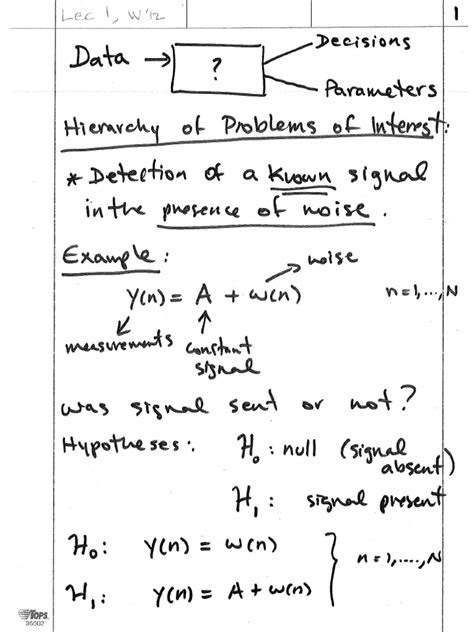 Lec 1, W'12
1
Data → ? Decisions
Parameters
Hierarchy of Problems of Interest:
* Detection of a known signal
in the presence of noise.
Example:
noise
y(n) = A + w(n) n=1,...,N
measurements constant
signal
was signal sent or not?
Hypotheses: H₀: null (signal
absent)
H₁: signal present
H₀: y(n) = w(n)
n=1,....,N
H₁: y(n) = A + w(n)
TOPS
35502